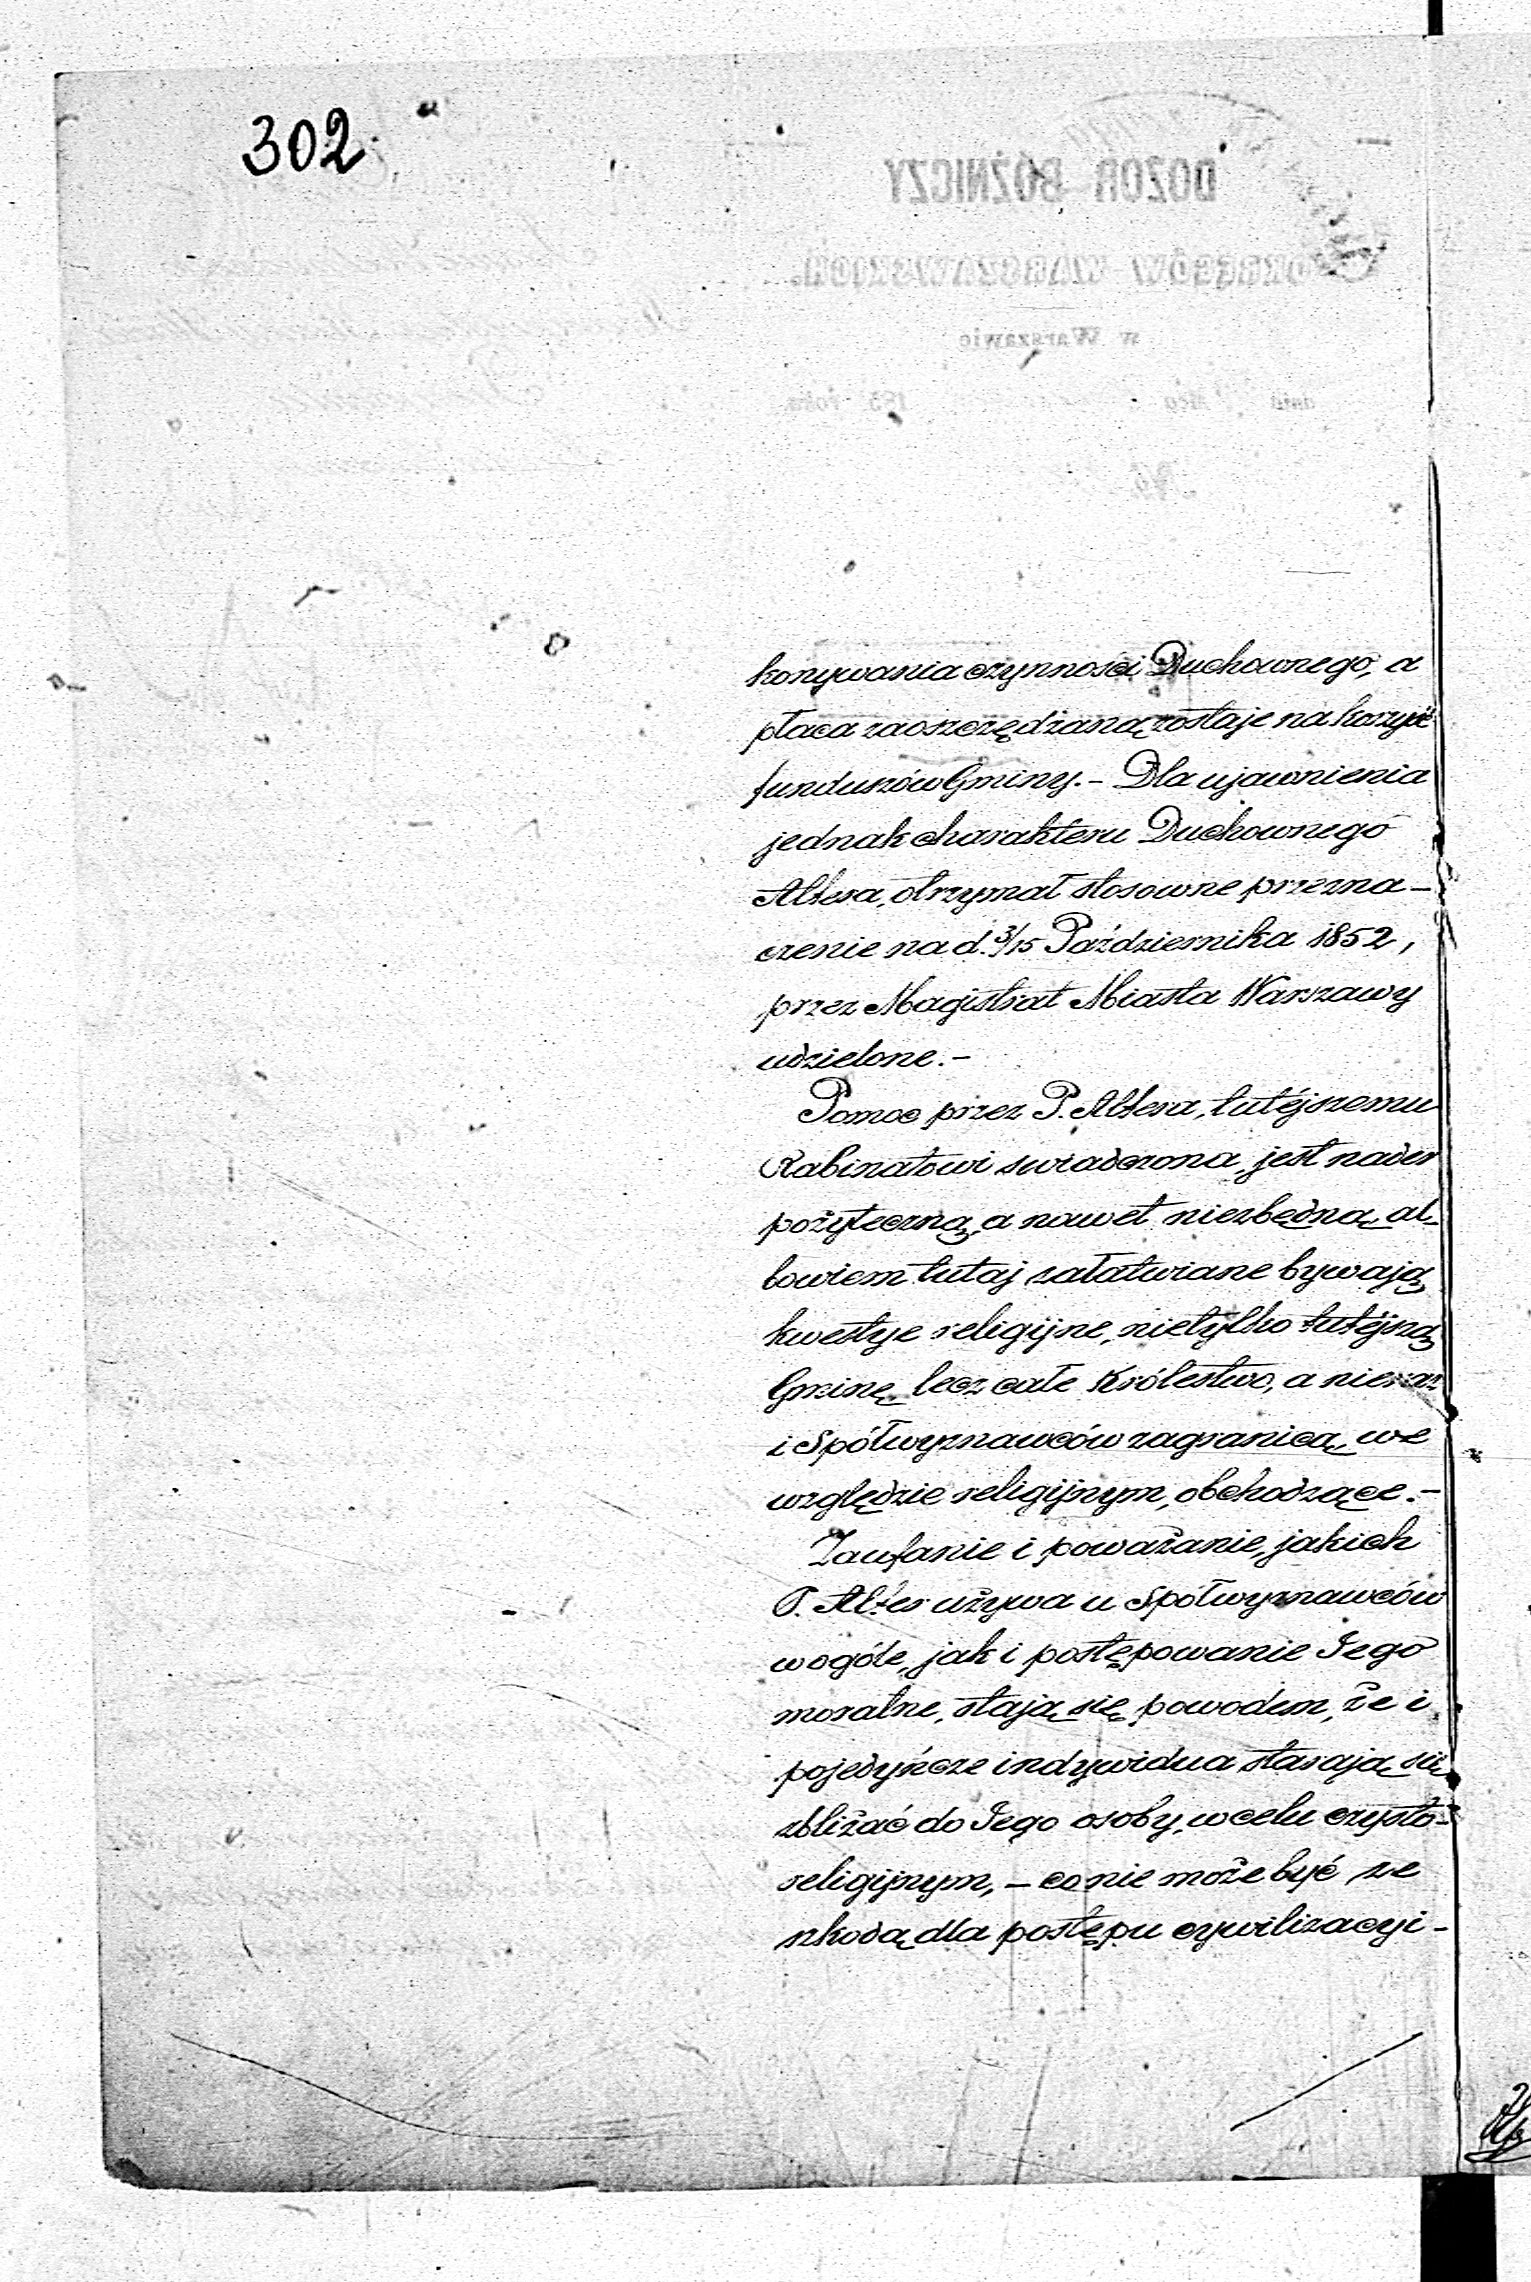 302
konywania czynności Duchownego, a
płaca zaoszczędzaną zostaje na korzyść
funduszów Gminy. – Dla ujawnienia
jednak charakteru Duchownego
Altera, otrzymał stosowne przezna–
czenie na d. 3/15 Października 1852,
przez Magistrat Miasta Warszawy
udzielone. –
Pomoc przez P. Altera, tutéjszemu
Rabinatowi swiadczona, jest nader
pożyteczną, a nawet niezbędną, al–
bowiem tutaj załatwiane bywają
kwestye religijne, nietylko tutéjszą
Gminę, lecz całe Królestwo, a nieraz
i Spółwyznawców zagranicą, we
względzie religijnym, obchodzące. –
Zaufanie i poważanie, jakich
P. Alter używa u Spółwyznawców
wogóle, jak i postępowanie Jego
moralne, stają się powodem, że i
pojedyńcze indywidua starają się
zbliżać do Jego osoby, w celu czysto–
religijnym, – co nie może być ze
szkodą dla postępu cywilizacyi –
DOZÓR BÓŻNICZY
OKRĘGÓW WARSZAWSKICH.
w Warszawie
dnia
185 roku